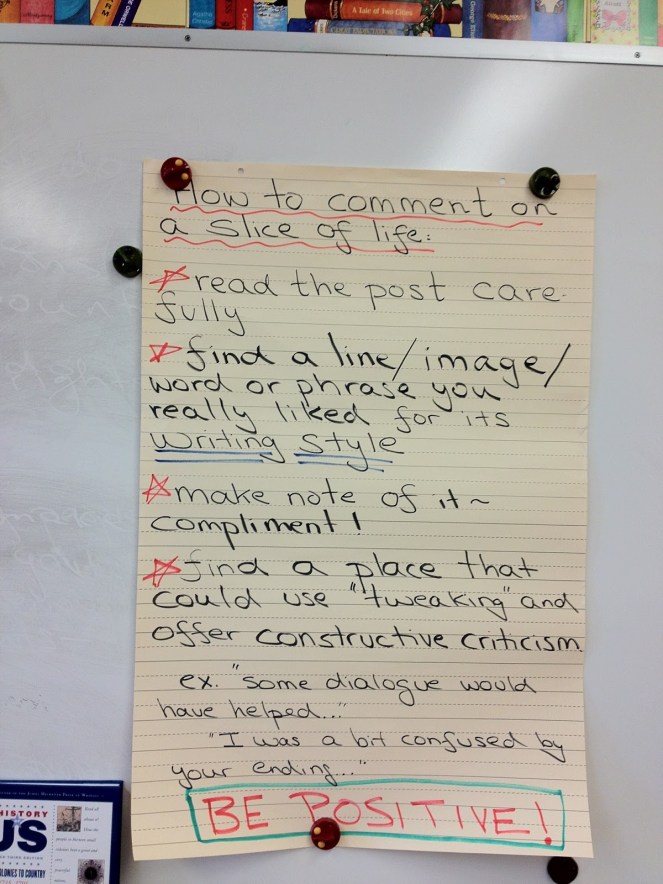 A Tale of Two Cities
How to comment on
a Slice of life:
read the post care-
fully
find a line/image/
word or phrase you
really liked for its
Writing Style
make note of it~
compliment!
find a place that
could use "tweaking" and
offer constructive criticism.
ex. "some dialogue would
have helped..."
"I was a bit confused by
your ending..."
BE POSITIVE!
HISTORY
US
COLONIES TO COUNTRY